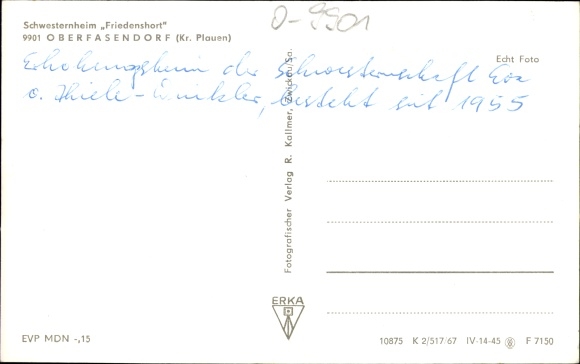 Schwesternheim „Friedenshort"
9901 OBERFASENDORF (Kr. Plauen)
O-9901
Erholungsheim der Schwesternschaft Eva
v. Thiele-Winkler, besteht seit 1955
Echt Foto
Fotografischer Verlag R. Kallmer, Zwickau/Sa.
ERKA
EVP MDN -,15
10875 K 2/517/67 IV-14-45 F 7150